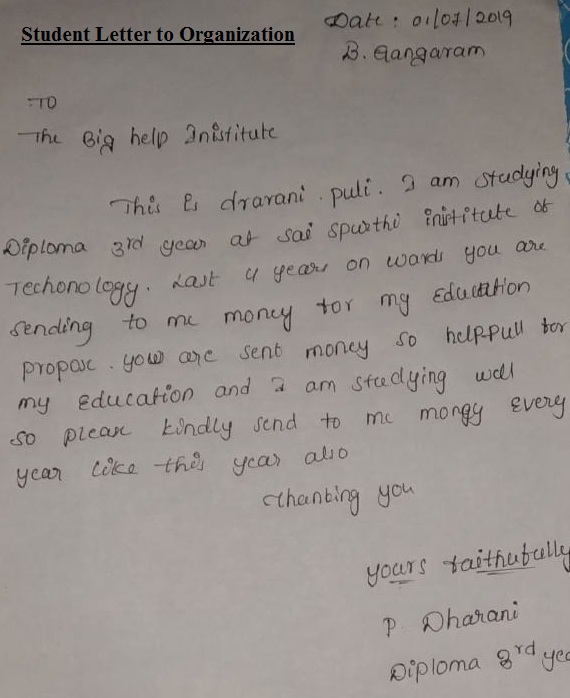 Student Letter to Organization
Date : 01/07/2019
B. Gangaram
:TO
The Big help Inistitute
This is dravani . puli . I am studying
Diploma 3rd year at sai spurthi inititute of
Techonology . Last 4 years on wards you are
sending to me money for my Education
propose . you are sent money so helppull for
my Education and I am studying well
so please kindly send to me mongy every
year like this year also
Thanking you
yours faithufully
P. Dharani
Diploma 3rd yea